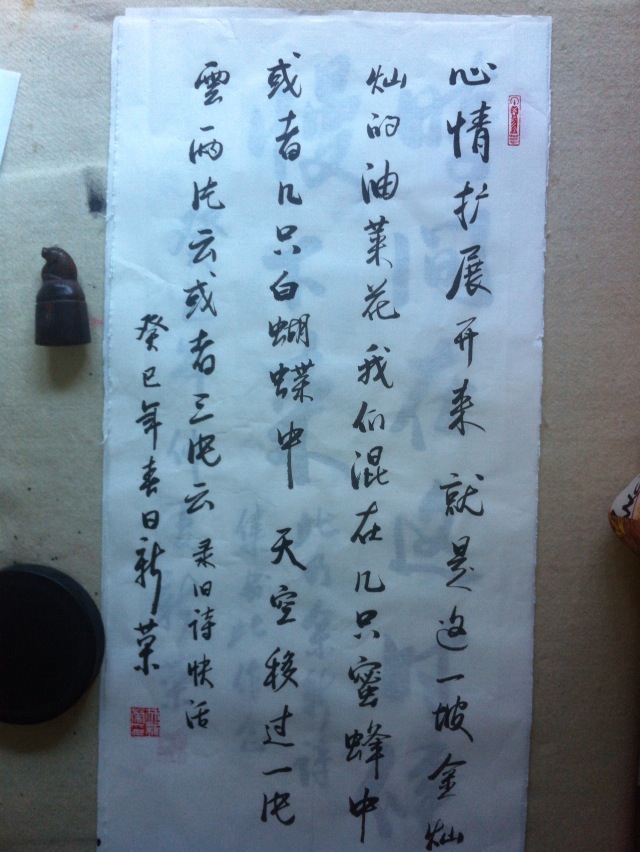 心情扩展开来 就是这一坡金灿
灿的油菜花我们混在几只蜜蜂中
或者几只白蝴蝶中 天空移过一片
雲两片云或者三片云 录旧诗快活
癸巳年春日新荣